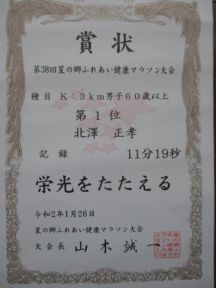 賞状
第38回星の郷ふれあい健康マラソン大会
種目 K:3km男子60歳以上
第1位
北澤 正孝
記録 11分19秒
栄光をたたえる
令和2年1月26日
星の郷ふれあい健康マラソン大会
大会長 山本誠一